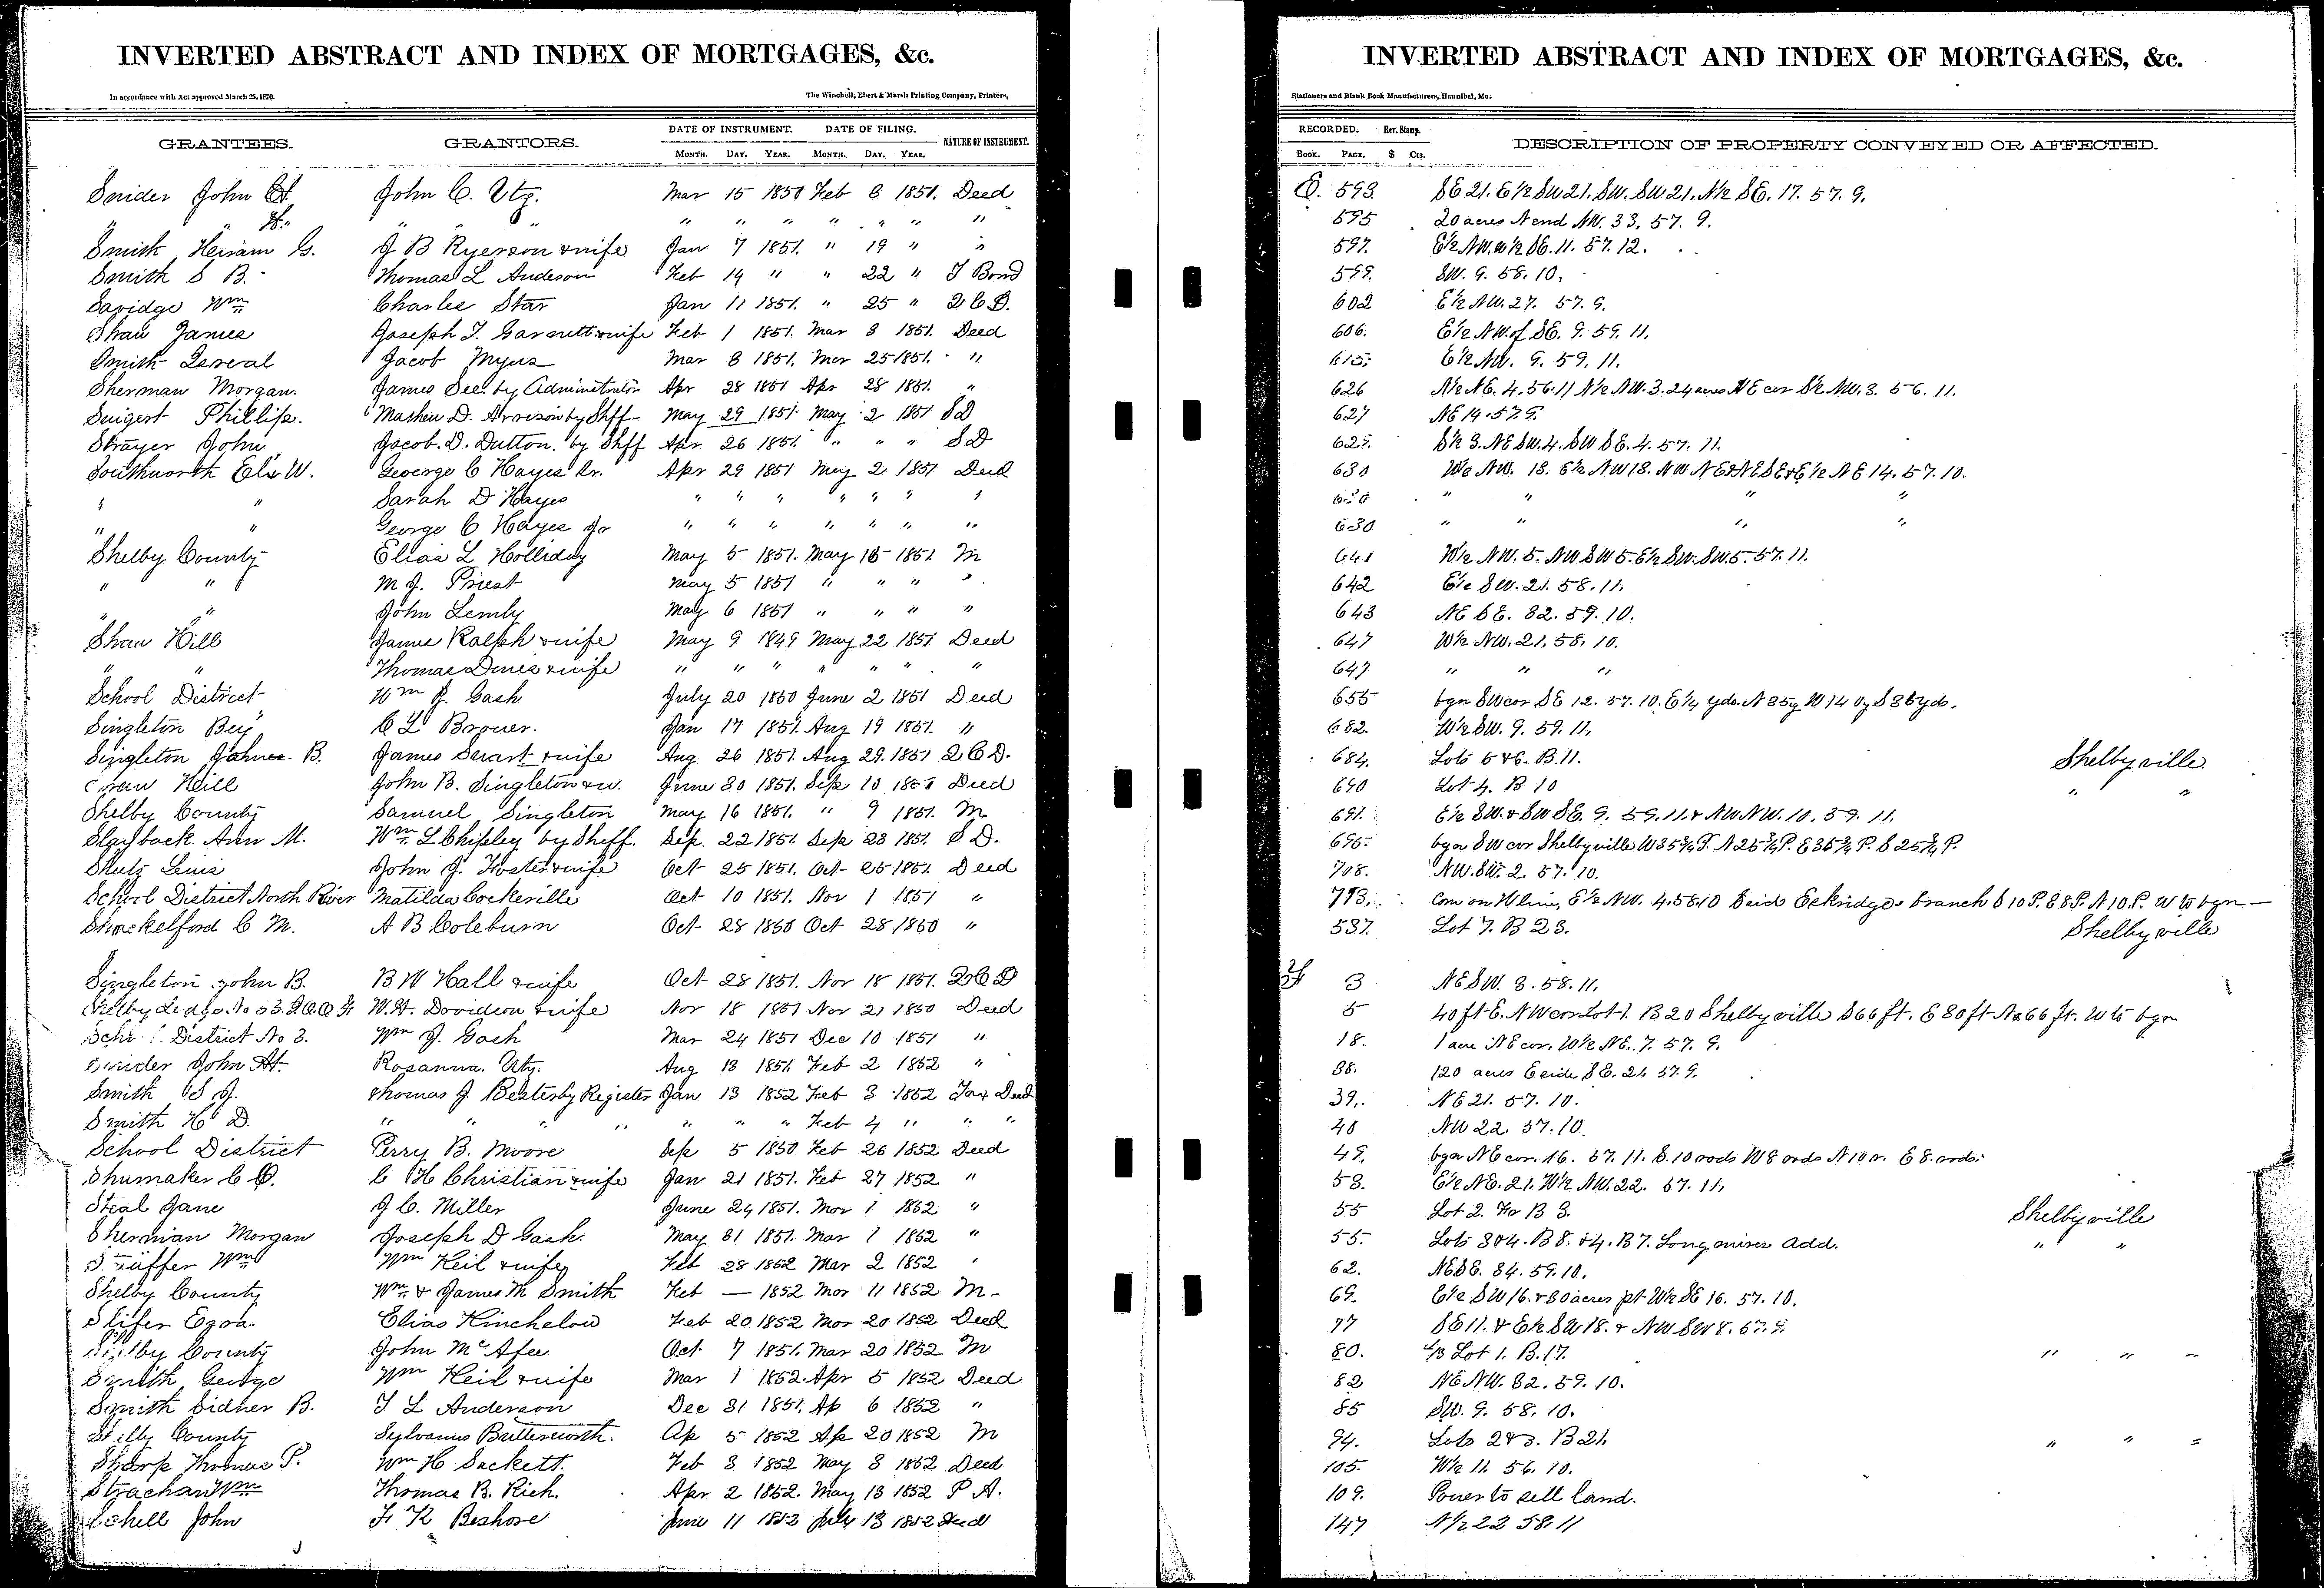 INVERTED ABSTRACT AND INDEX OF MORTGAGES, &c.
In accordance with Act approved March 25, 1870.
The Winchell, Ebert & Marsh Printing Company, Printers,
GRANTEES. GRANTORS. DATE OF INSTRUMENT. DATE OF FILING. NATURE OF INSTRUMENT.
MONTH. DAY. YEAR. MONTH. DAY. YEAR.
Snider John H. John C. Utz. Mar 15 1850 Feb 8 1851. Deed
" " H. " " " " " " " " "
Smith Heiram G. J B Ryerson & wife Jan 7 1851. " 19 " "
Smith S B. Thomas L Anderson Feb 14 " " 22 " T Bond
Savidge Wm Charles Star Jan 11 1851. " 25 " 2 C D.
Shaw James Joseph T. Garnett & wife Feb 1 1851. Mar 8 1851. Deed
Smith Jacob Myers Mar 8 1851. Mar 25 1851. "
Sherman Morgan. James See by Administrator Apr 28 1851 Apr 28 1851. "
Phillip. Mathew D. by Shff May 29 1851. May 2 1851 S D
Strayer John Jacob. D. Dutton. by Shff Apr 26 1851. " " " S D
Southworth Eli W. George C Hayes Sr. Apr 29 1851 May 2 1851 Deed
" " Sarah D Hayes " " " " " " "
" " George C Hayes Jr " " " " " " "
Shelby County Elias L Holliday May 5 1851. May 15 1851 M
" " M J. Priest May 5 1851 " " " "
" " John Lemly May 6 1851 " " " "
Shaw Hill James Ralph & wife May 9 1849 May 22 1851 Deed
" " Thomas & wife " " " " " " "
School District Wm J. Gash July 20 1850 June 2 1851 Deed
Singleton Benj C L Brower. Jan 17 1851. Aug 19 1851. "
Singleton B. James Swart & wife Aug 26 1851. Aug 29. 1851 2 C D.
Shaw Hill John B. Singleton & w. June 30 1851. Sep 1851 Deed
Shelby County Samuel Singleton May 16 1851. " 9 1851. M
Slayback. Ann M. Wm. L Chipley by Sheff. Sep. 22 1851. Sep 23 1851. S D.
Shutz Lewis John J. Foster & wife Oct 25 1851. Oct 25 1851. Deed
School District North River Matilda Cockerille Oct 10 1851. Nov 1 1851 "
Shackelford C M. A B Coleburn Oct 28 1850 Oct 28 1850 "
Singleton John B. B W Hall & wife Oct 28 1851. Nov 18 1851. 2 C D
Shelby Lodge No 33. I. O. O F W. H. Davidson & wife Nov 18 1851 Nov 21 1850 Deed
School District No 3. Wm J. Gash Mar 24 1851 Dec 10 1851 "
Snider John H. Rosanna. Utz. Aug 13 1851. Feb 2 1852 "
Smith S J. Thomas J. by Register Jan 13 1852 Feb 3 1852 Tax Deed
Smith H D. " " " " " " Feb 4 " " "
School District Perry B. Moore Sep 5 1850 Feb 26 1852 Deed
Shumaker C C. C H Christian & wife Jan 21 1851. Feb 27 1852 "
Steal Jane J C. Miller June 24 1851. Mar 1 1852 "
Sherman Morgan Joseph D Gash. May 31 1851. Mar 1 1852 "
Wm Wm Keil & wife Feb 28 1852 Mar 2 1852 "
Shelby County Wm. & James M Smith Feb — 1852 Mar 11 1852 M
Slifer Ezra. Elias Kincheloe Feb 20 1852 Mar 20 1852 Deed
Shelby County John McAfee Oct 7 1851. Mar 20 1852 M
Smith George Wm Keil & wife Mar 1 1852. Apr 5 1852 Deed
Smith Sidner B. T L Anderson Dec 31 1851. Ap 6 1852 "
Shelby County Sylvanus Butterworth. Ap 5 1852 Ap 20 1852 M
Sharp Thomas P. Wm H Sackett. Feb 3 1852 May 8 1852 Deed
Strachan Wm Thomas B. Rich. Apr 2 1852. May 13 1852 P A.
Schell John F. K Beshore June 11 1852 July 13 1852 Deed
INVERTED ABSTRACT AND INDEX OF MORTGAGES, &c.
Stationers and Blank Book Manufacturers, Hannibal, Mo.
RECORDED. Rev. Stamp. DESCRIPTION OF PROPERTY CONVEYED OR AFFECTED.
BOOK. PAGE. $ Cts.
593 SE 21. E½ SW 21. SW. SW 21. N½ SE. 17. 57. 9.
595 20 acres N end NW. 33. 57. 9.
597. E½ NW. W½ SE. 11. 57. 12.
599. SW. 9. 58. 10.
602 E½ NW. 27. 57. 9.
606. E½ NW. of SE. 9. 59. 11.
615. E½ NW. 9. 59. 11.
626 N½ NE. 4. 56. 11 N½ NW. 3. 24 acres NE cor S½ NW. 3. 56. 11.
627 NE 14. 57. 9.
629. S½ 3. NE SW. 4. SW SE. 4. 57. 11.
630 W½ NW. 13. E½ NW 13. NW NE & NE SE & E½ NE 14. 57. 10.
630 " " " "
630 " " " "
641 W½ NW. 5. NW SW 5. E½ SW. SW. 5. 57. 11.
642 E½ SW. 21. 58. 11.
643 NE SE. 32. 59. 10.
647 W½ NW. 21. 58. 10.
647 " " "
655 bgn SW cor SE 12. 57. 10. E 14 yds. N 35 y W 14 y S 35 yds.
682. W½ SW. 9. 59. 11.
684. Lots 5 & 6. B. 11. Shelbyville
690 Lot 4. B 10 " "
691. E½ SW. & SW SE. 9. 59. 11. & NW NW. 10. 59. 11.
695. bgn SW cor Shelbyville W 35¾ P. N 25¾ P. E 35¾ P. S 25¾ P.
708. NW. SW. 2. 57. 10.
713. Com on W line, E½ NW. 4. 56. 10 Seid Eskridges branch S 10 P. E 8 P. N 10. P. W to bgn —
537. Lot 7. B 23. Shelbyville
3 NE SW. 3. 58. 11.
5 40 ft E. NW cor Lot 1. B 20 Shelbyville S 66 ft. E 80 ft N 66 ft. W to bgn
18. 1 acre NE cor. W½ NE. 7. 57. 9.
38. 120 acres E side SE. 21. 57. 9.
39. NE 21. 57. 10.
40 NW 22. 57. 10.
49. bgn NE cor. 16. 57. 11. S. 10 rods W 8 rods N 10 r. E 8. rods.
53. E½ NE. 21. W½ NW. 22. 57. 11.
55 Lot 2. B 3. Shelbyville
55. Lots 3 & 4. B 8. & 4. B 7. Longmires Add. " "
62. NE SE. 34. 59. 10.
69. E½ SW 16. & 80 acres pt W½ SE 16. 57. 10.
77 SE 11. & E½ SW 18. & NW SW 8. 57. 9.
80. ⅓ Lot 1. B. 17. " " "
82 NE NW. 32. 59. 10.
85 SW. 9. 58. 10.
94. Lots 2 & 3. B 21. " " "
105. W½ 11. 56. 10.
109. Power to sell land.
147 N½ 22 58. 11